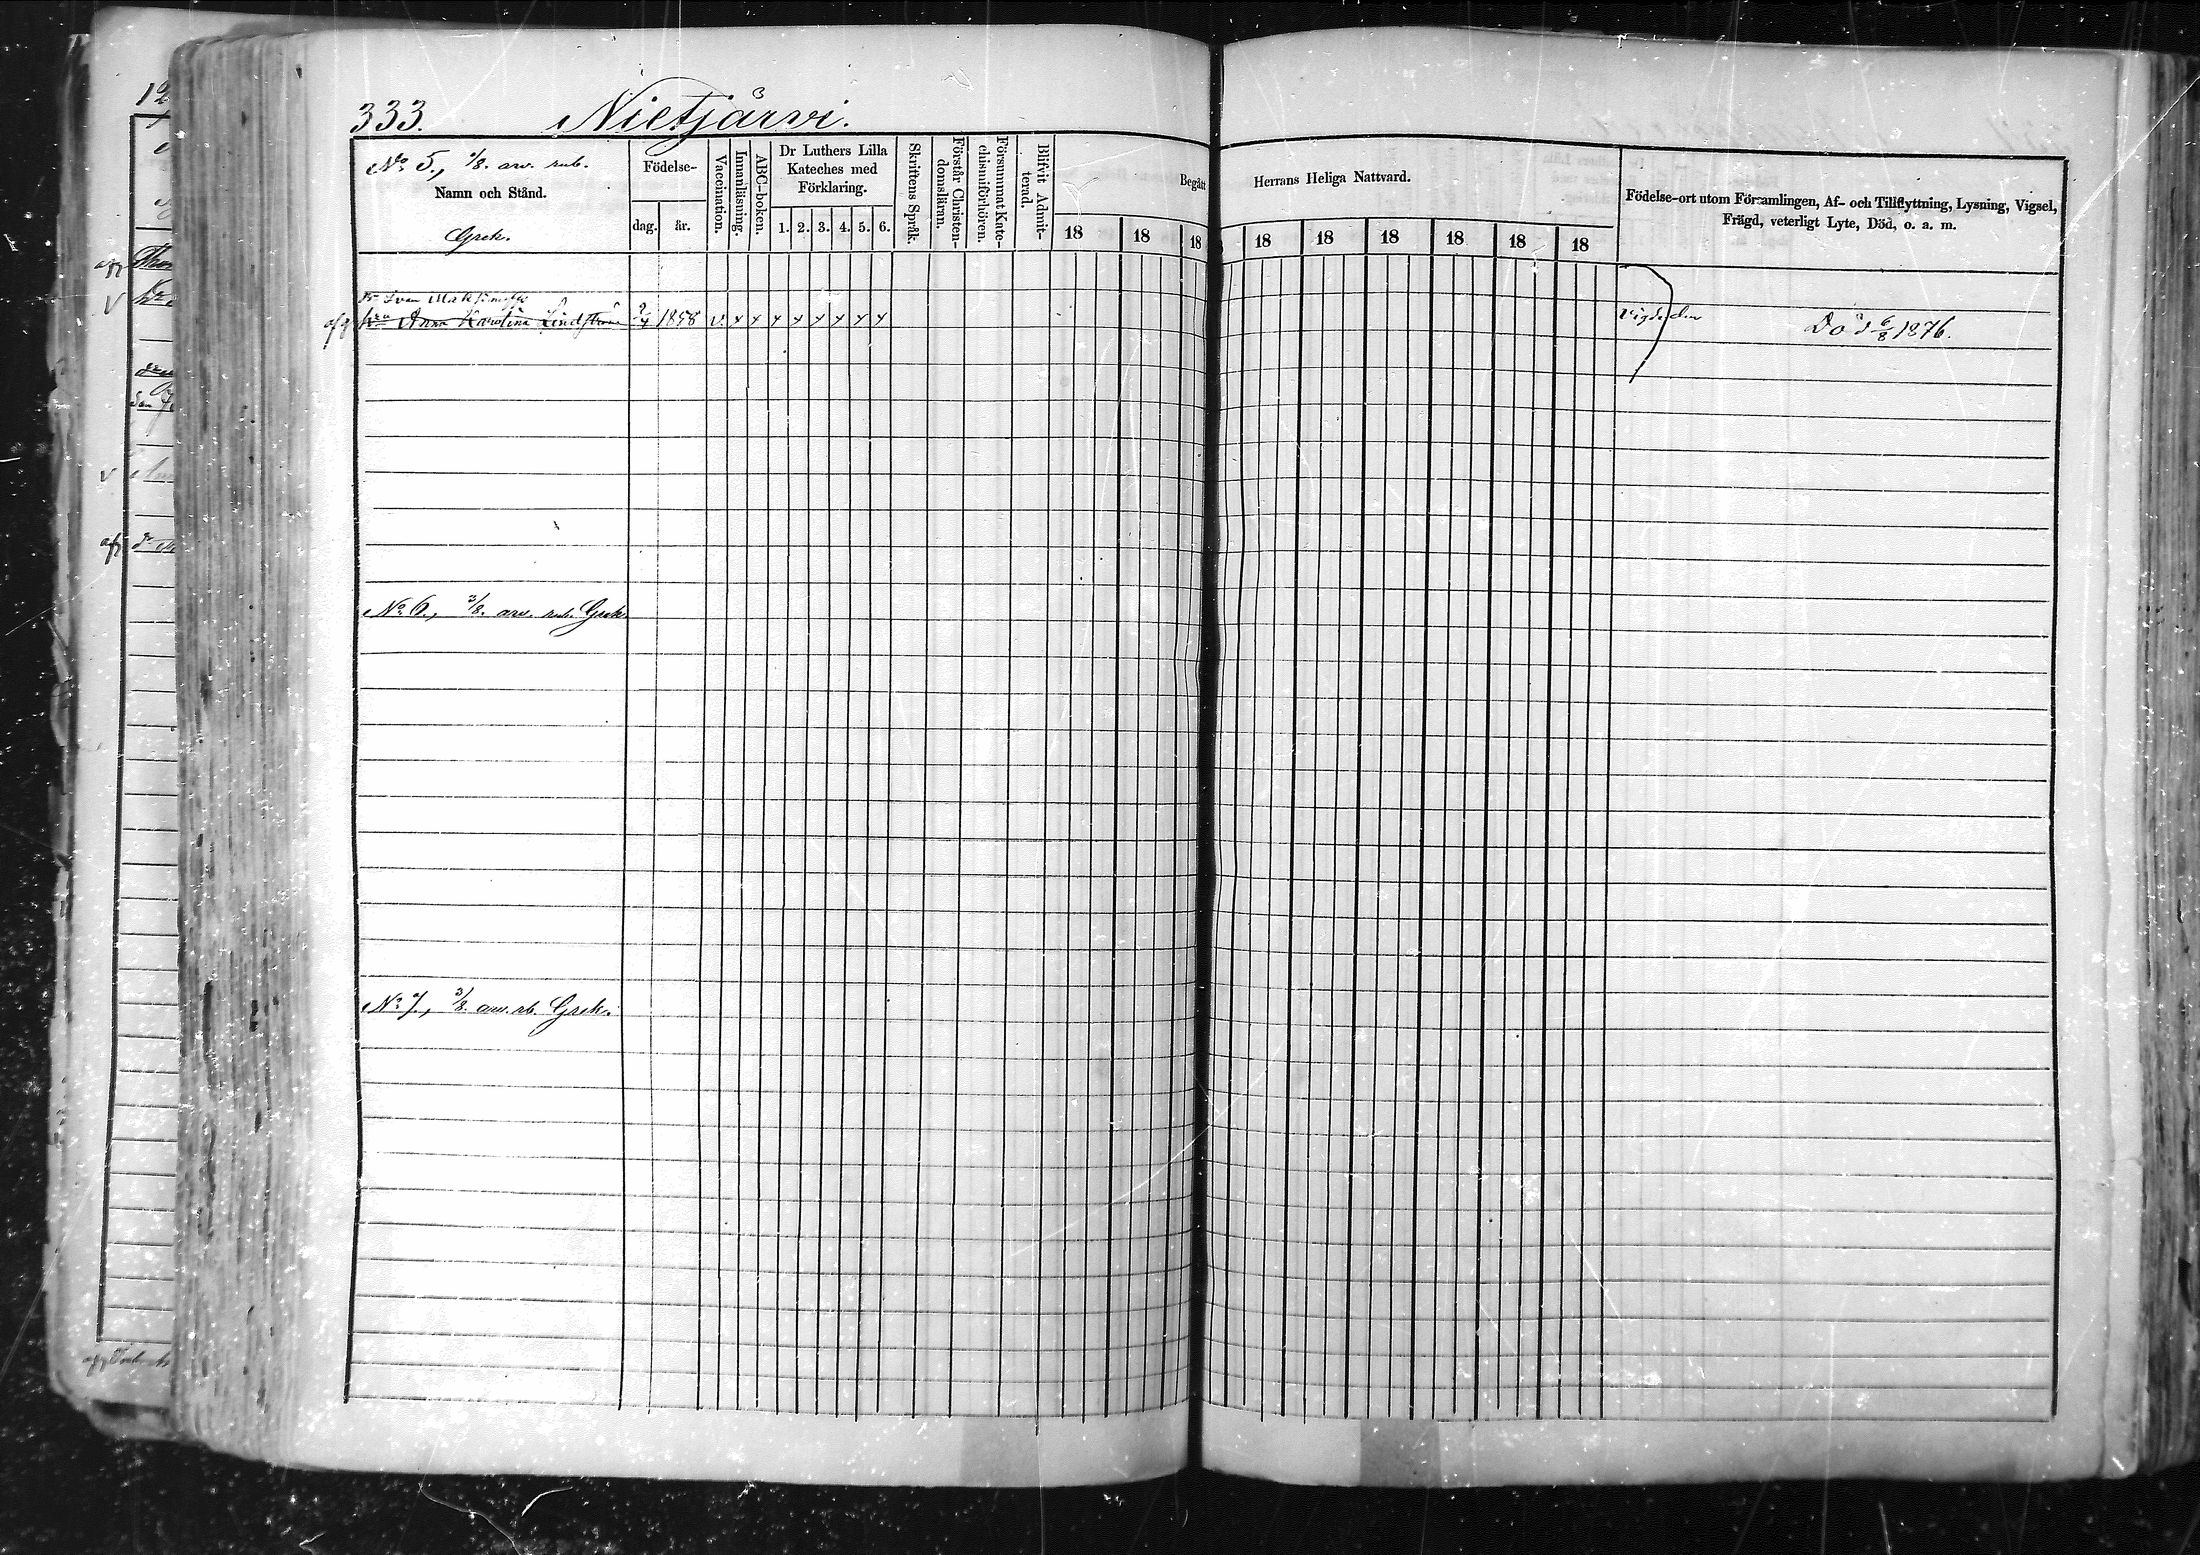 333. Nietjärvi.
No 5., /8. arv. rub.
Namn och Stånd.
Grek.
Födelse-
dag. år.
Vaccination.
Innanläsning.
ABC-boken.
Dr Luthers Lilla
Kateches med
Förklaring.
1. 2. 3. 4. 5. 6.
Skriftens Språk.
Förstår Christen-
domsläran.
Försummat Kate-
chismiförhören.
Blifvit Admit-
terad.
Begått Herrans Heliga Nattvard.
18 18 18 18 18 18 18 18 18
Födelse-ort utom Församlingen, Af- och Tillflyttning, Lysning, Vigsel,
Frägd, veterligt Lyte, Död, o. a. m.
Ivan
Anna Karolina Lindström 1858 v. x x x x x x x x
Död 6/8 1876.
No 6., 3/8. arv. rub. Grek.
No 7., 3/8. arv. rb. Grek.